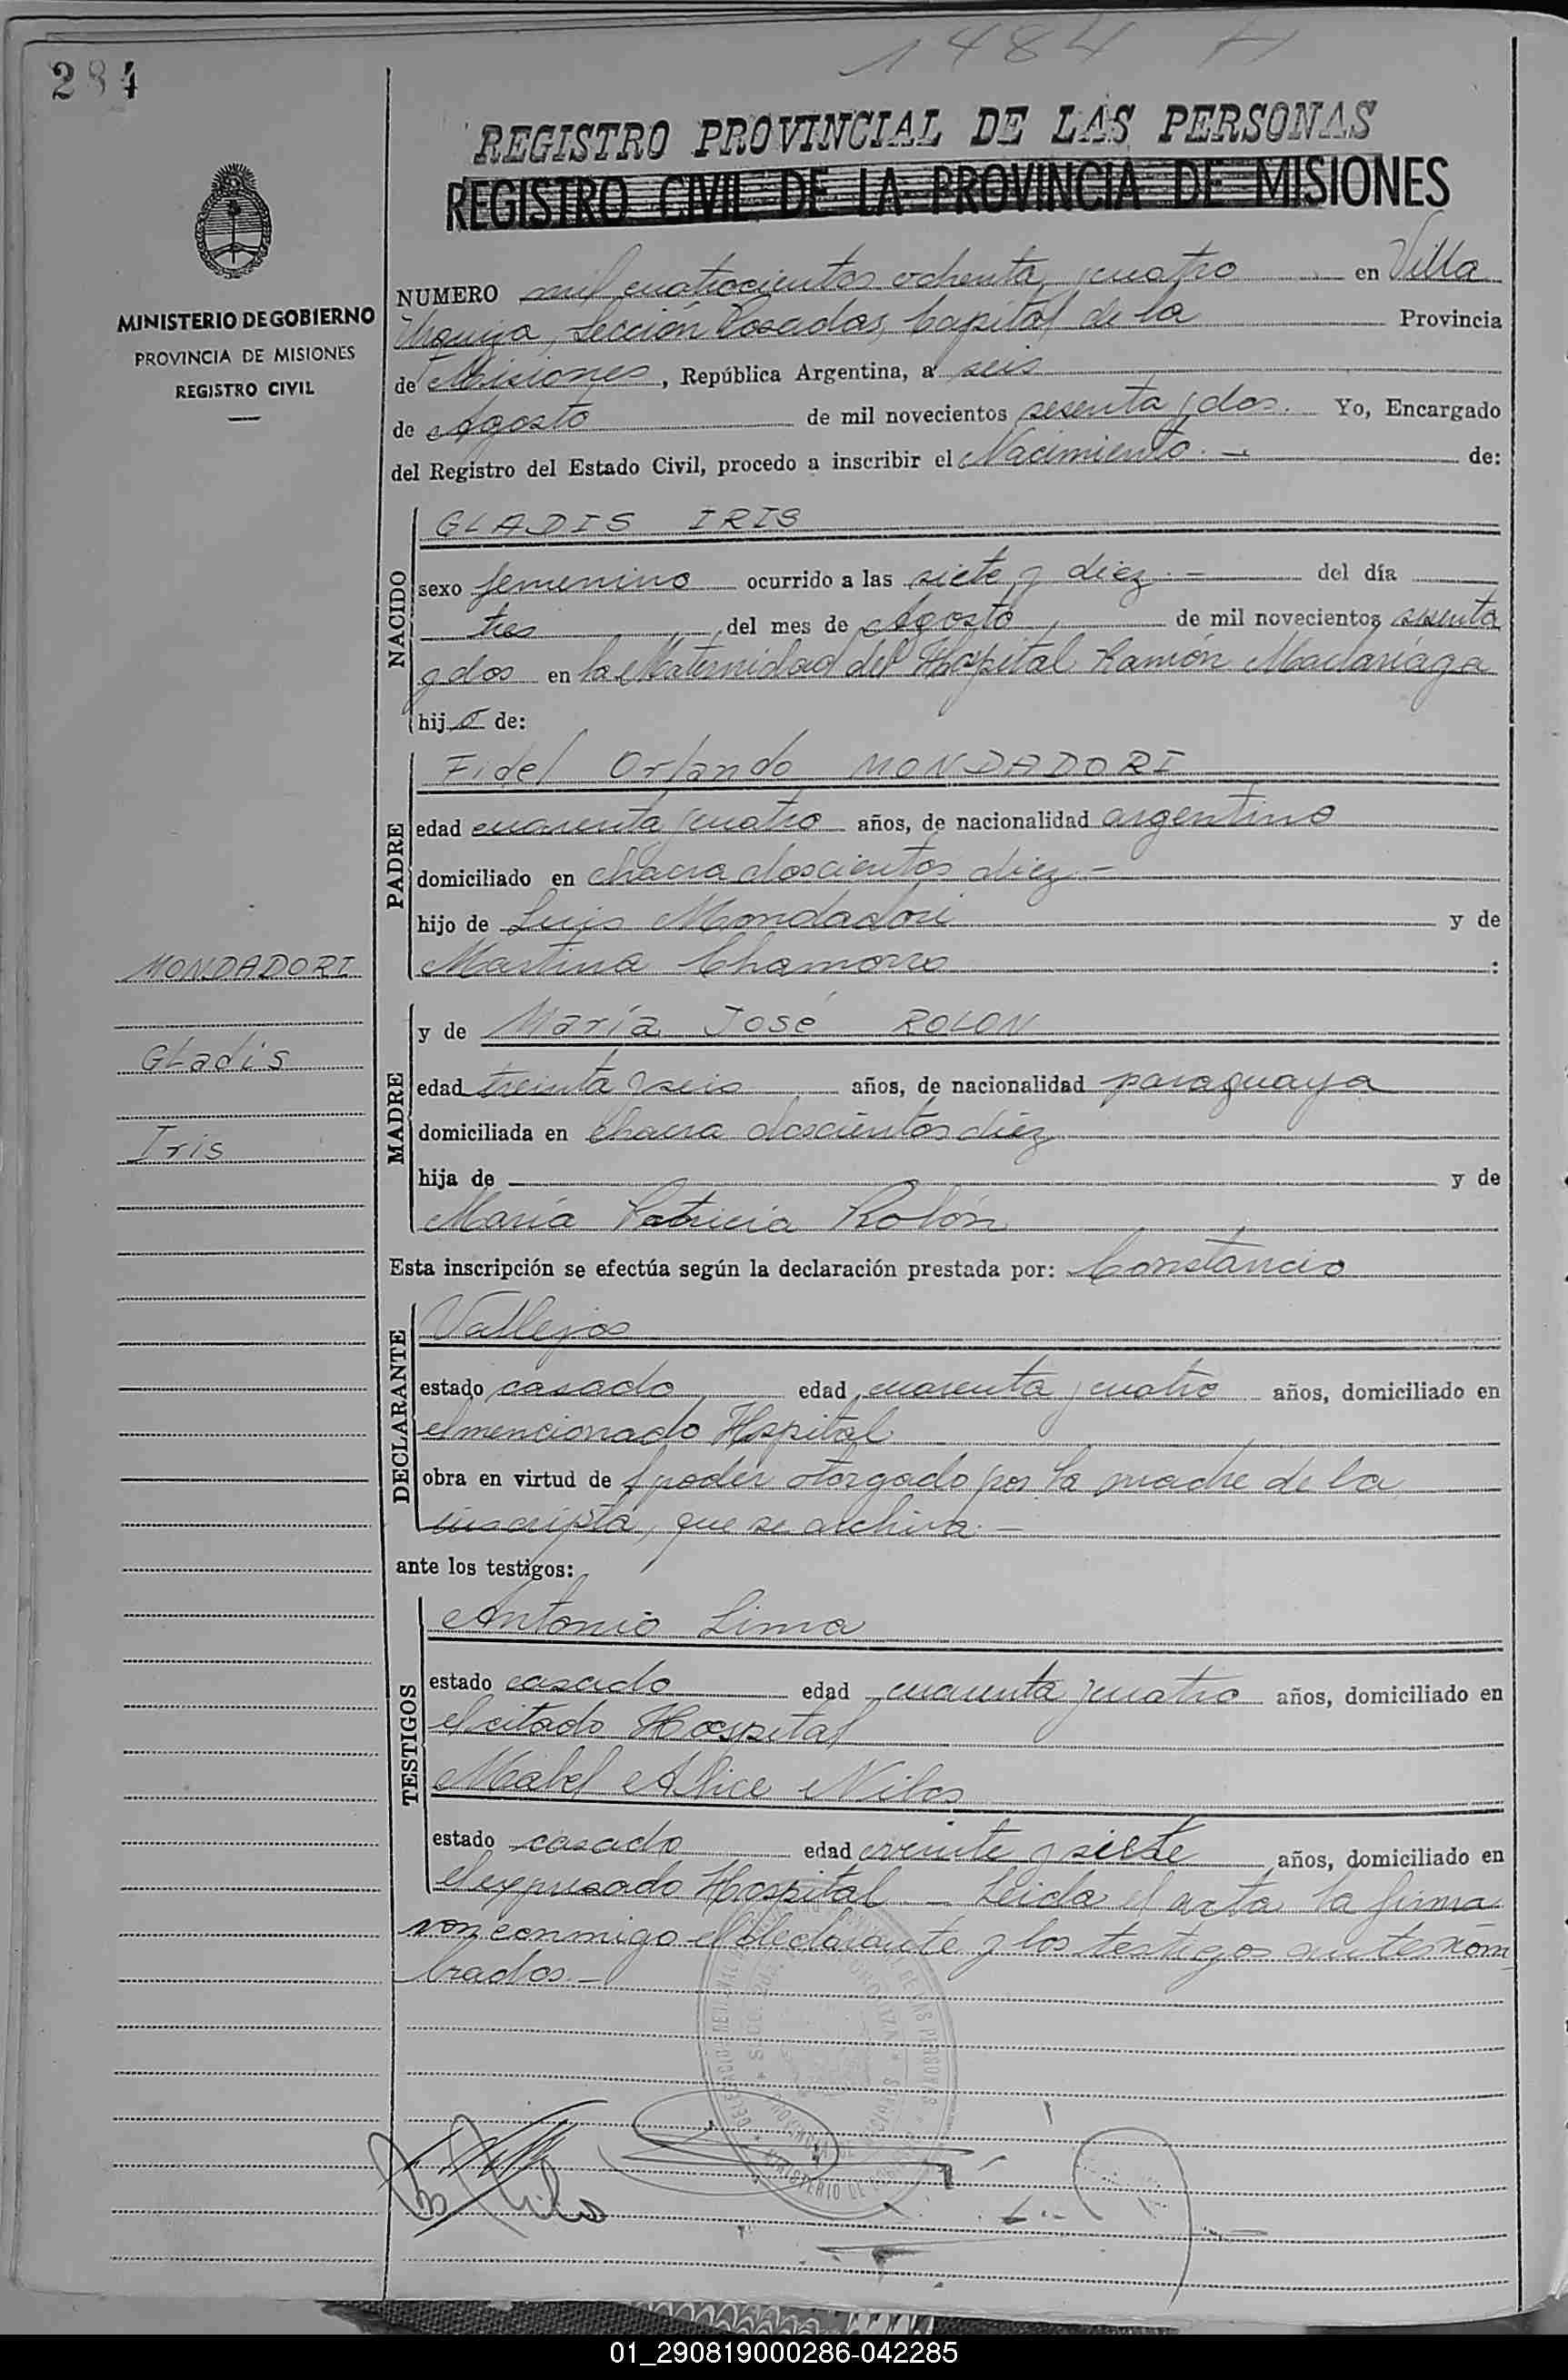 284
1484
REGISTRO PROVINCIAL DE LAS PERSONAS
REGISTRO CIVIL DE LA PROVINCIA DE MISIONES
MINISTERIO DE GOBIERNO
PROVINCIA DE MISIONES
REGISTRO CIVIL
NUMERO mil cuatrocientos ochenta y cuatro en Villa
Urquiza, Sección Posadas, Capital de la Provincia
de Misiones, República Argentina, a seis
de Agosto de mil novecientos sesenta y dos. Yo, Encargado
del Registro del Estado Civil, procedo a inscribir el Nacimiento.- de:
NACIDO
GLADIS IRIS
sexo femenino ocurrido a las siete y diez.- del día
tres del mes de Agosto, de mil novecientos sesenta
y dos en la Maternidad del Hospital Ramón Madariaga
hija de:
PADRE
Fidel Orlando MONDADORI
edad cuarenta y cuatro años, de nacionalidad argentino
domiciliado en chacra doscientos diez-
hijo de Luis Mondadori y de
Martina Chamorro :
MONDADORI
Gladis
Iris
MADRE
y de María José ROLON
edad treinta y seis años, de nacionalidad paraguaya
domiciliada en Chacra doscientos diez
hija de y de
María Patricia Rolón
Esta inscripción se efectúa según la declaración prestada por: Constancio
DECLARANTE
Vallejos
estado casado edad cuarenta y cuatro años, domiciliado en
el mencionado Hospital
obra en virtud de poder otorgado por la madre de la
inscripta, que se archiva.-
ante los testigos:
TESTIGOS
Antonio Lima
estado casado edad cuarenta y cuatro años, domiciliado en
el citado Hospital
Mabel Alice
estado casado edad veinte y siete años, domiciliado en
el expresado Hospital - Leida el acta la firma
ron conmigo el declarante y los testigos antes nom
brados.-
01_290819000286-042285